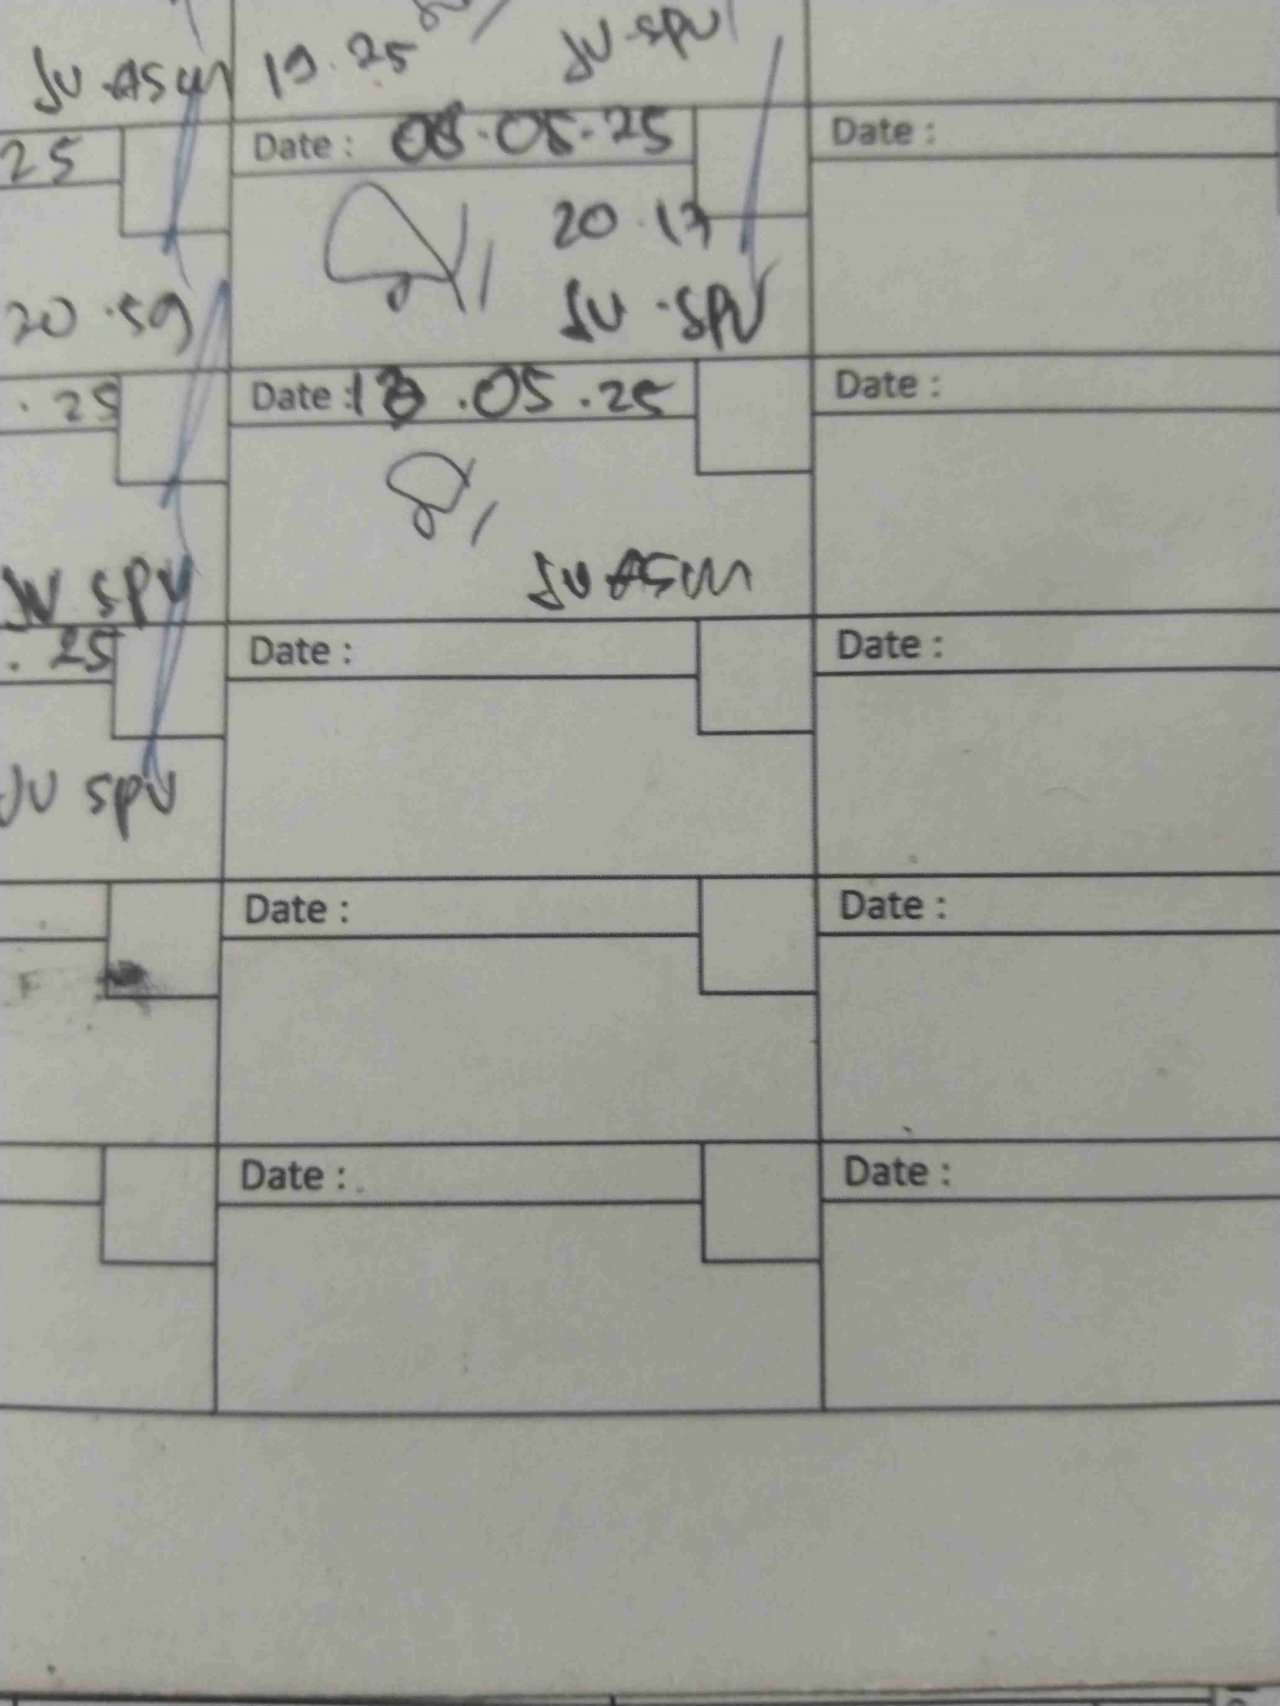 JU ASM 19.25 JU SPV
25 Date : 08.05.25 Date :
20.17
20.59 JU.SPV
.25 Date : 13.05.25 Date :
JU SPV JU ASM
.25 Date : Date :
JU SPV
Date : Date :
Date : Date :